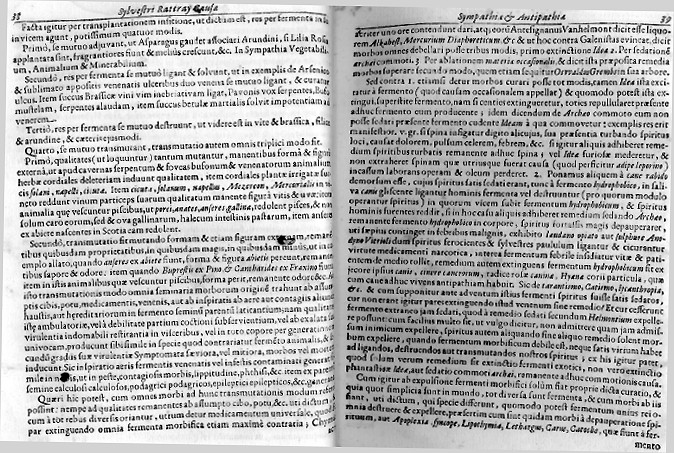 38 Sylvestri Rattray Causa
Facta igitur per transplantationem insitione, ut dictum est, res per fermenta in se
invicem agunt, potissimum quatuor modis.
Primò, se mutuo adjuvant, ut Asparagus gaudet associari Arundini, si Lilia Rosis
applantata sint, fragrantiores fiunt & melius crescunt, &c. In Sympathia Vegetabili-
um, Animalium & Mineralium.
Secundò, res per fermenta se mutuò ligant & solvunt, ut in exemplis de Arsenico
& sublimato appositis venenatis ulceribus duo venena se mutuo ligant, & curatur
ulcus. Item succus Brassicæ vini vim inebriativam ligat, Pavonis vox serpentes, Bufo
mustelam, serpentes alaudam, item succus betulæ martialis solvit impotentiam ad
venerem.
Tertiò, res per fermenta se mutuo destruunt, ut videre est in vite & brassica, filice
& arundine, & cæteris ejusmodi.
Quartò, se mutuo transmutant, transmutatio autem omnis triplici modo fit.
Primò, qualitates (ut loquuntur) tantum mutantur, manentibus formâ & figurâ
externâ, ut apud cavernas serpentum & foveas bufonum & venenatorum animalium
herbæ cordiales deleteriam induunt qualitatem, item cordiales plantæ irrigatæ suc-
ci solani, napelli, cicutæ. Item cicuta, solanum, napellus, Mezereon, Mercurialis in vi-
neto reddunt vinum particeps suarum qualitatum manente figurâ vitis & uvæ
animalia quæ vescuntur piscibus, ut porci, anates, anseres, gallinæ, redolent pisces, &
solum caro eorum, sed & ova gallinarum, halecum intestinis pastarum, item anseres
ex abiete nascentes in Scotia eam redolent.
Secundò, transmutatio fit mutando formam & etiam figuram externam, remanen-
tibus quibusdam proprietatibus, in quibusdam magis, in quibusdam minus, ut in ex-
emplo allato, quando anseres ex abiete fiunt, forma & figura abietis pereunt, remanen-
tibus sapore & odore. item quando Buprestis ex Pino & Cantharides ex Fraxino fiunt,
item in istis animalibus quæ vescuntur piscibus, forma perit, remanente odore: &c. Ad
isto transmutationis modo omnia seminaria morborum originem trahunt ab assum-
ptis cibis, potu, medicamentis, venenis, aut ab inspiratis ab aere aut contagiis aliunde
haustis, aut hæreditariorum in fermento seminis parentû latitantium; quam qualitates
istæ ambulatoriæ, vel à debilitate partium coctioni subservientum, vel ab exaltata sua
virulentia indomabili restitantia in visceribus, vel in toto corpore per generationem
univocam, producunt sibi simile in specie quod contrariatur fermêto animali, & se-
cundò gradus suæ virulentiæ Symptomata sæviora, vel mitiora, morbos vel mortem
inducunt. Sic inspiratio aeris fermentis venenatis vel infestis contaminati generat si-
mile in nobis, ut in peste, contagiosis morbis, lippitudine, phthisi, &c. item ex patris
semine calculosi calculosos, podagrici podagricos, epileptici epilepticos, &c. generant.
Quæri hic potest, cum omnes morbi ad hunc transmutationis modum referri
possint: nempe ad qualitates remanentes ab assumpto cibo, potu, &c. uti dictum est,
cum à tot rebus diversis oriantur, utrum detur medicamentum universale, quod
par extinguendo omnia fermenta morbifica etiam maximè contraria; Chy
Sympathiæ & Antipathiæ 39
acriter uno ore contendunt dari, atq; eorû Antesignanus Vanhelmont dicit esse liquo-
rem Alkahest, Mercurium Diaphoreticum &c. & ut hoc contra Galenistas evincat, dicit
morbos omnes debellari posse tribus modis, primo extinctione Ideæ 2. Per sedationê
archei commoti. 3 Per ablationem materiæ occasionalis, & dicit ista præposita remedia
morbos superare secundo modo, quem etiam sequitur Oswaldus Grembsius in sua arbore.
Sed contra 1. etiamsi detur morbos curari posse tot modis, tamen Idea ista excita-
tur à fermento (quod causam occasionalem appellat) & quomodo potest ista ex-
tingui, superstite fermento, nam si centies extingueretur, toties repullularet præsente
adhuc fermento cum producente; idem dicendum de Archeo commoto cum non
posse sedari præsente fermento eodem Ideam à qua commovetur; exemplis res erit
manifestior. v.gr. si spina infigatur digito alicujus, sua præsentia turbando spiritum
loci, causat dolorem, pulsum celerem, febrem, &c. si igitur aliquis adhiberet reme-
dium spiritibus turbatis remanente adhuc spina; vel Idea furiosæ mederetur, &
non extraheret spinam quæ utriusque fuerat causa (quod perficitur adipe leporino)
in cassum laborans operam & oleum perderet. 2. Ponamus aliquem à cane rabido
demorsum esse, cujus spiritus satis sedati erant, tunc à fermento hydrophobico, in sali-
va canis glescente ligantur hominis fermenta vel destruuntur (pro quorum modulo
operantur spiritus) in quorum vicem subit fermentum hydrophobicum, & spiritus
hominis furentes reddit, si in hoc casu aliquis adhiberet remedium sedando Archeo,
remanente fermento hydrophobico in corpore, spiritus fortassis magis depauperaret,
uti sæpius contingit in febribus malignis, exhibito laudano opiato aut sulphure Ano-
dyno Vitrioli dum spiritus feroscientes & sylvestres paululum ligantur & coercantur
virtute medicamenti narcotica, interea fermentum febrile insidiatur vitæ & pati-
entem de medio tollit, remedium autem extinguens fermentum hydrophobicum fit ex
jecore ipsius canis, cinere cancrorum, radice rosæ caninæ, Hyæna corii particula, quæ
cum canea adhuc vivens antipathiam habuit. Sic de tarantismo, Catismo, lycanthropia,
&c. & cum supponuntur ante adventum istius fermenti spiritus fuisse satis sedatos,
cur non erant igitur pares extinguendo istud venenum sine remedio? Et cur cessaret
fermento extraneo jam sedati, quod à remedio sedati secundum Helmontium expelle-
re possunt cum facilius multo sit, ut vulgo dicitur, non admittere quam jam admis-
sum inimicum expellere, spiritus autem aliquando sine aliquo remedio solent mor-
bum expellere, quando fermentum morbificum debile est, neque satis virium habet
ad ligandos, destruendos aut transmutandos nostros spiritus; ex his igitur patet,
quod solum verum remedium sit extinctio fermenti exotici, non vero extinctio
phantasticæ Ideæ, aut sedatio commoti archei, remanente adhuc commotionis causa.
Cum igitur ab expulsione fermenti morbifici solùm fiat proprie dicta curatio, &
quia quot simplicia sunt in mundo, tot diversa sunt fermenta, & cum morbi ab iis
fiant, uti dictum, qui specie differunt, quomodo potest fermentum unius rei o-
mnia destruere & expellere, præsertim cum sint quidam morbi à depauperatione spi-
rituum, aut Apoplexia, syncope, Lipothymia, Lethargus, Carus, Catochus, quæ fiunt à fer-
mento